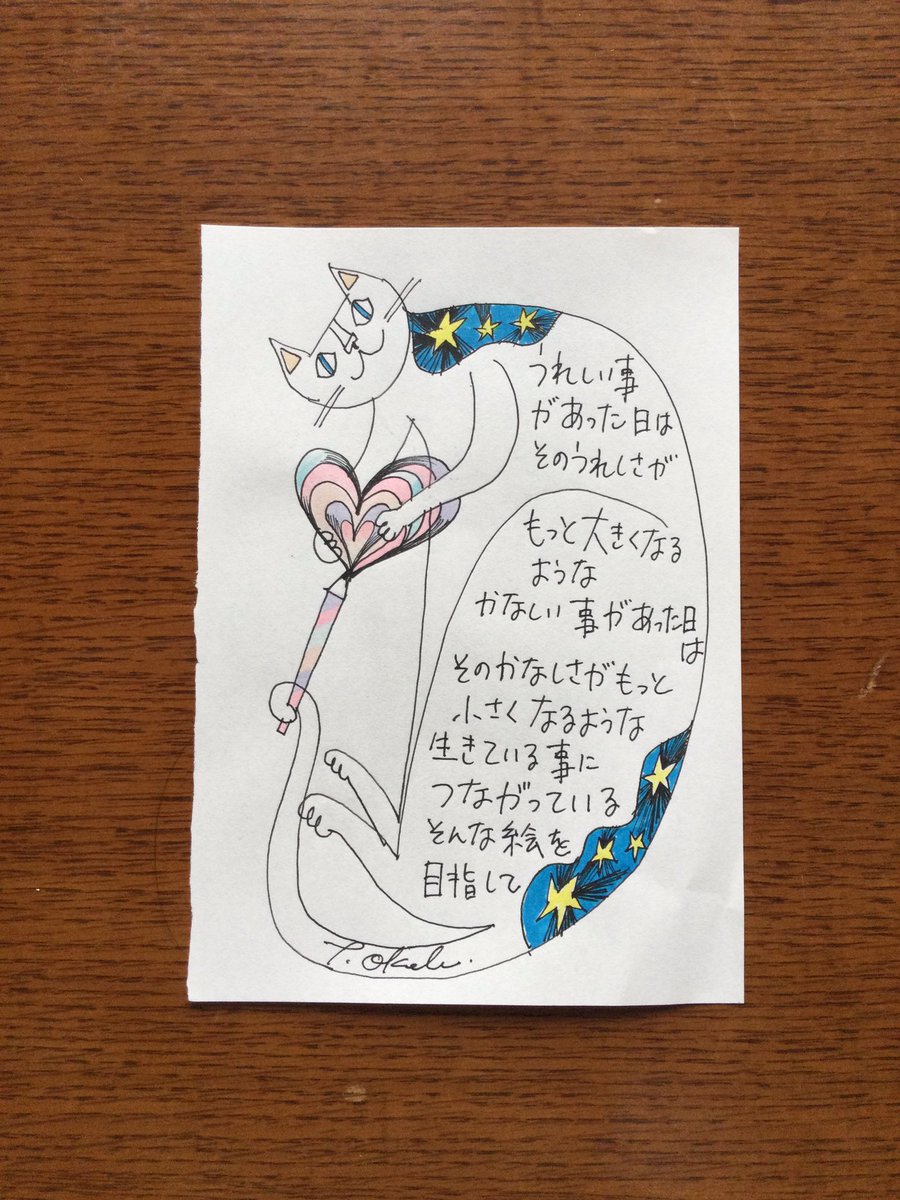 うれしい事
があった日は
そのうれしさが
もっと大きくなる
ような
かなしい事があった日
は
そのかなしさがもっと
小さくなるような
生きている事に
つながっている
そんな絵を
目指して